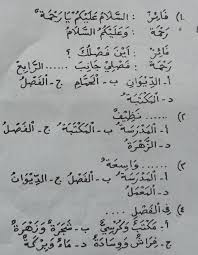 ١) فَارِسٌ : السَّلَامُ عَلَيْكُمْ يَا رَحْمَةُ
رَحْمَةُ : وَعَلَيْكُمُ السَّلَامُ
فَارِسٌ : أَيْنَ فَصْلُكِ ؟
رَحْمَةُ : فَصْلِيْ جَانِبَ ...... الرَّابِعِ
أ- الدِّيْوَانِ ب- الْحَمَّامِ ج- الْفَصْلِ
د- الْمَكْتَبَةِ
٢) ...... نَظِيْفٌ
أ- الْمَدْرَسَةُ ب- الْمَكْتَبَةُ ج- الْفَصْلُ
د- الزَّهْرَةُ
٣) ...... وَاسِعَةٌ
أ- الْمَدْرَسَةُ ب- الْفَصْلُ ج- الدِّيْوَانُ
د- الْمَعْمَلُ
٤) فِي الْفَصْلِ ....
أ- مَكْتَبٌ وَكُرْسِيٌّ ب- شَجَرَةٌ وَزَهْرَةٌ
ج- فِرَاشٌ وَوِسَادَةٌ د- مَاءٌ وَبِرْكَةٌ